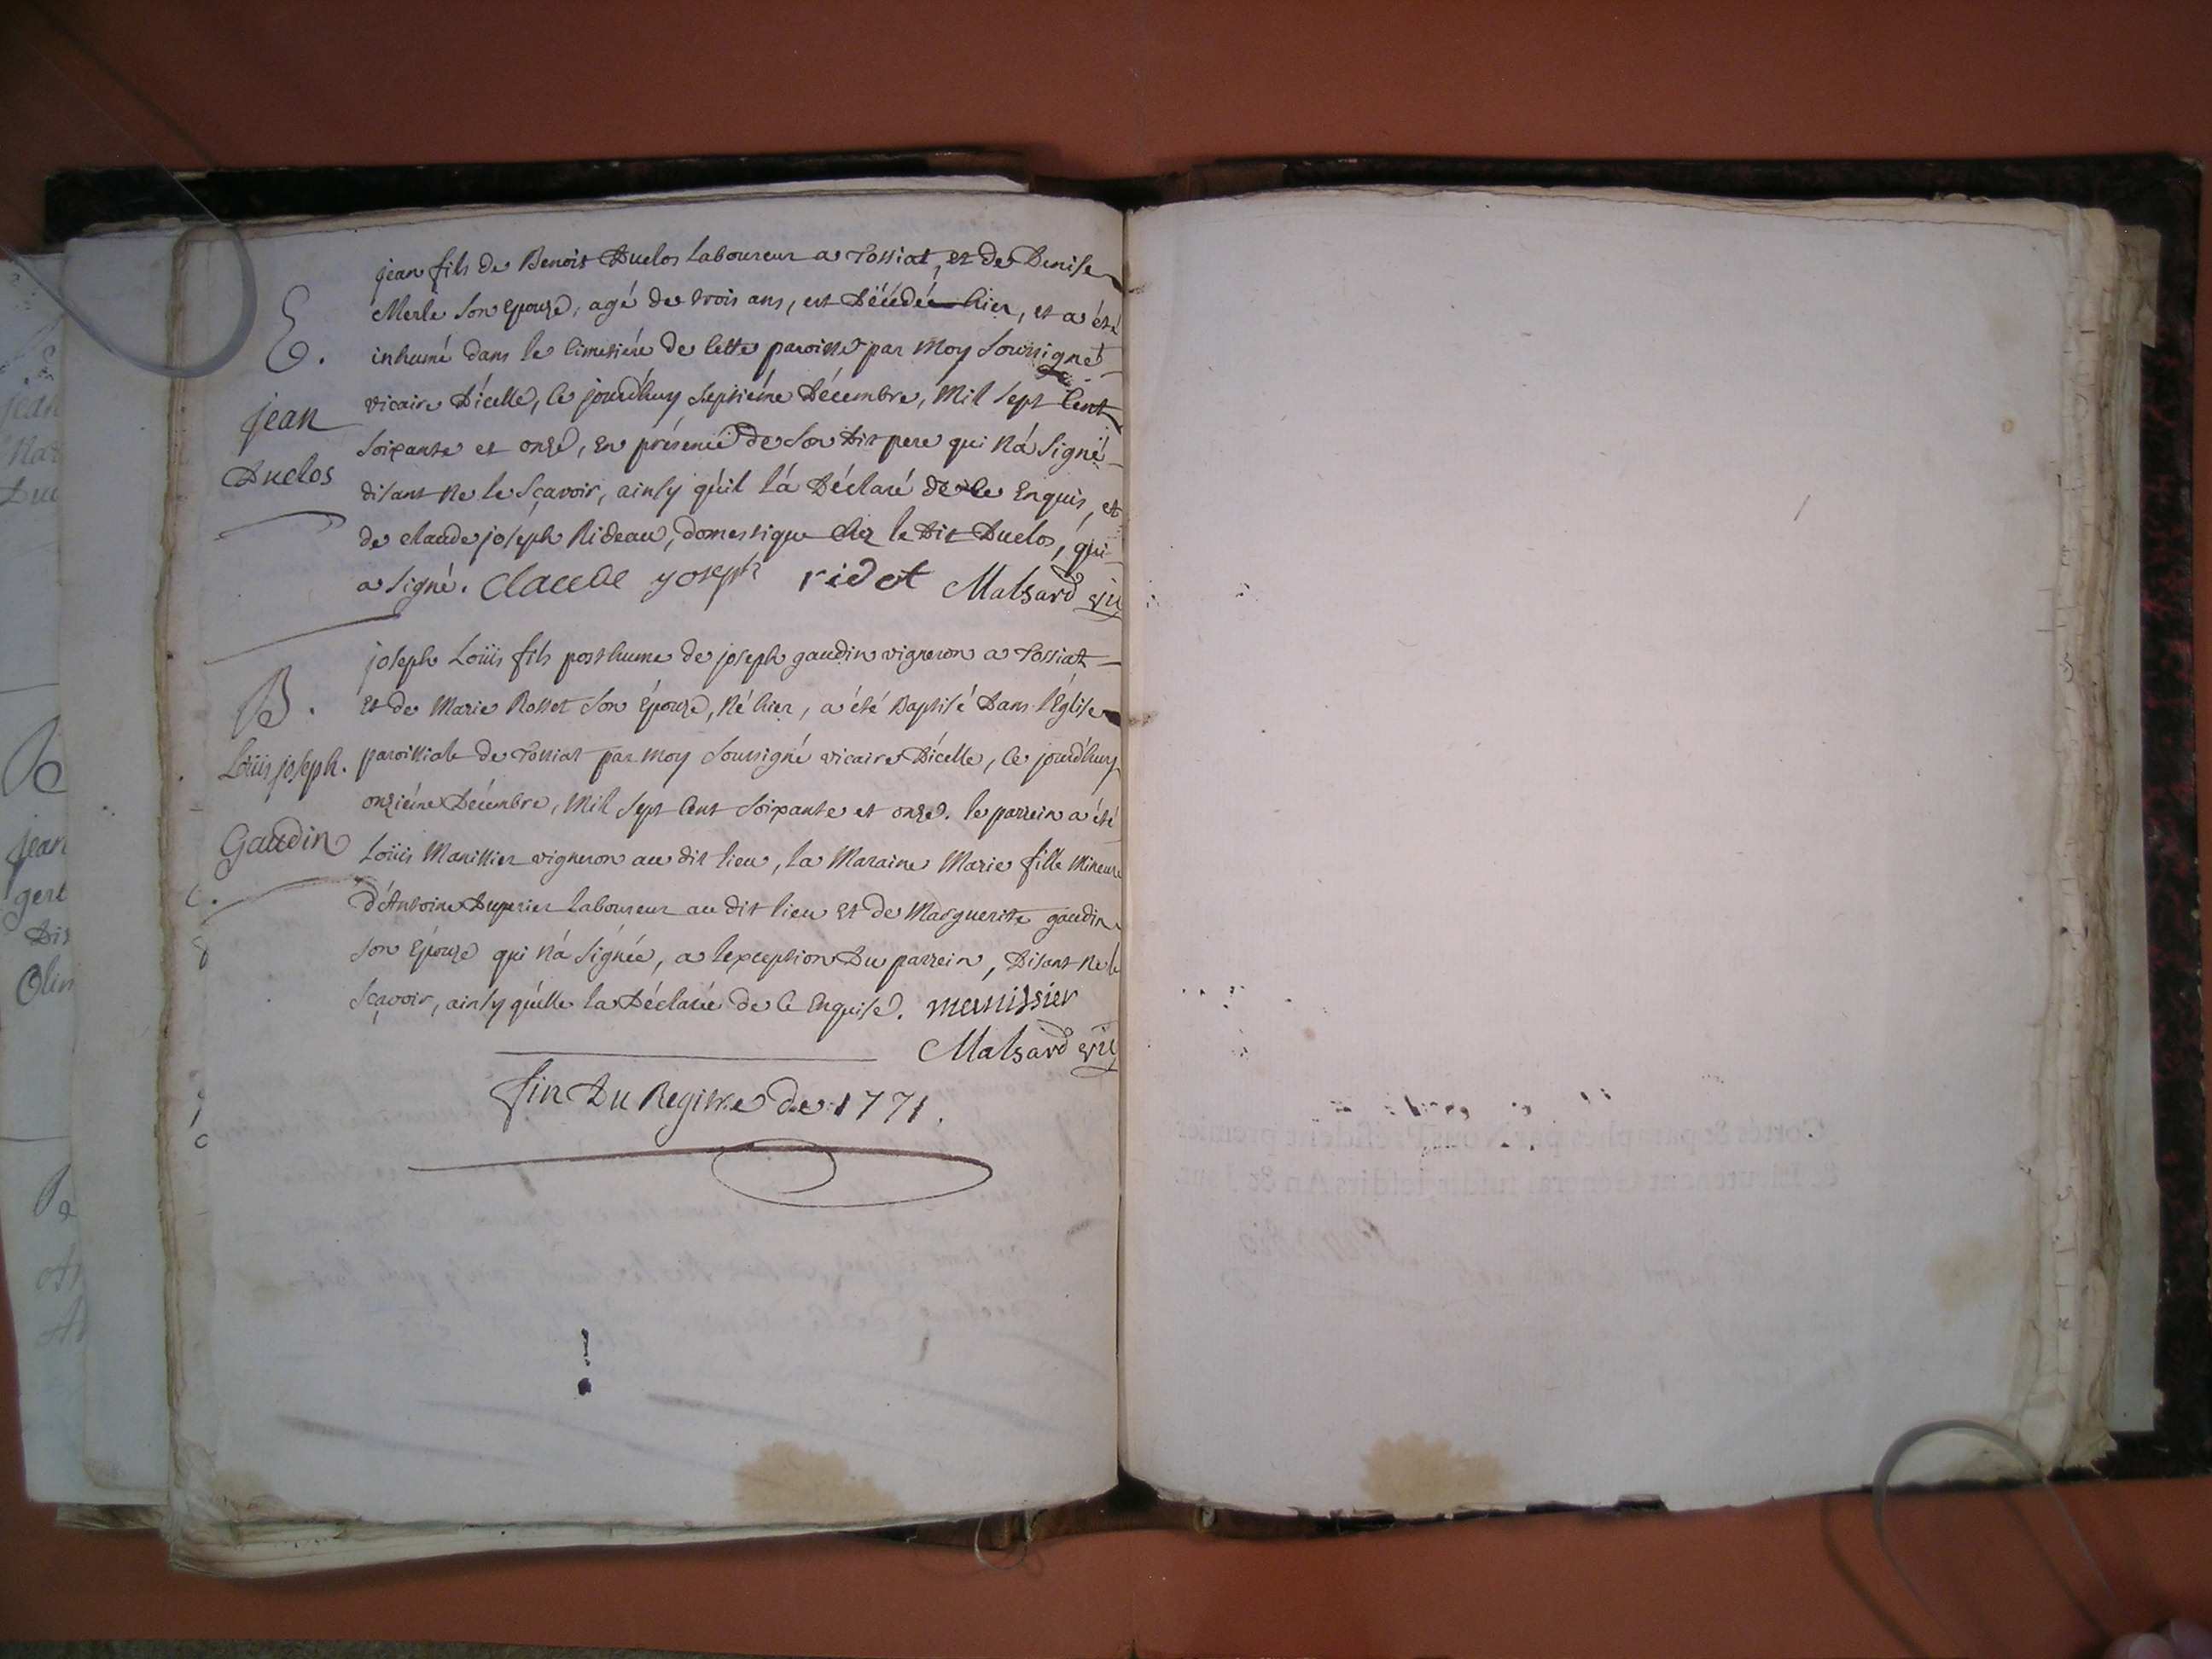 E.
jean
Duclos
jean fils de Benoit Duclos Laboureur a Tossiat, et de Denise
Merle son Epouze, agé de trois ans, est Décédé hier, et a été
inhumé dans le Cimetiére de Cette paroisse par Moy Soussigné
vicaire D'icelle, Ce jourd'huy Septiéme Décembre, Mil Sept Cent
Soixante et onze, en présence de Son Dit pere qui N'á Signé
disant Ne le Sçavoir, ainsy qu'il l'á Déclaré de Ce Enquis, et
de claude joséph Rideau, domestique Chez le Dit Duclos, qui
a Signé. Claude yoseph ridot Malsard vic
B.
Loüis joseph.
Gaudin
joseph Loüis fils posthume de joseph gaudin vigneron a Tossiat
Et de Marie Rosset Son Épouze, Né hier, a été Baptisé Dans l'Église
paroissiale de Tossiat par Moy Soussigné vicaire D'icelle, Ce jourd'huy
onziéme Décembre, Mil Sept Cent Soixante et onze. le parrein a été
Loüis Manissier vigneron au dit lieu, la Maraine Marie fille Mineure
d'Antoine Duperier Laboureur au dit lieu Et de Marguerite gaudin
Son Épouze qui N'á Signée, a l'exception Du parrein, Disant Ne le
Sçavoir, ainsy qu'elle la Déclarée de Ce Enquise. manissier
Malsard vic
fin Du Registre de 1771.